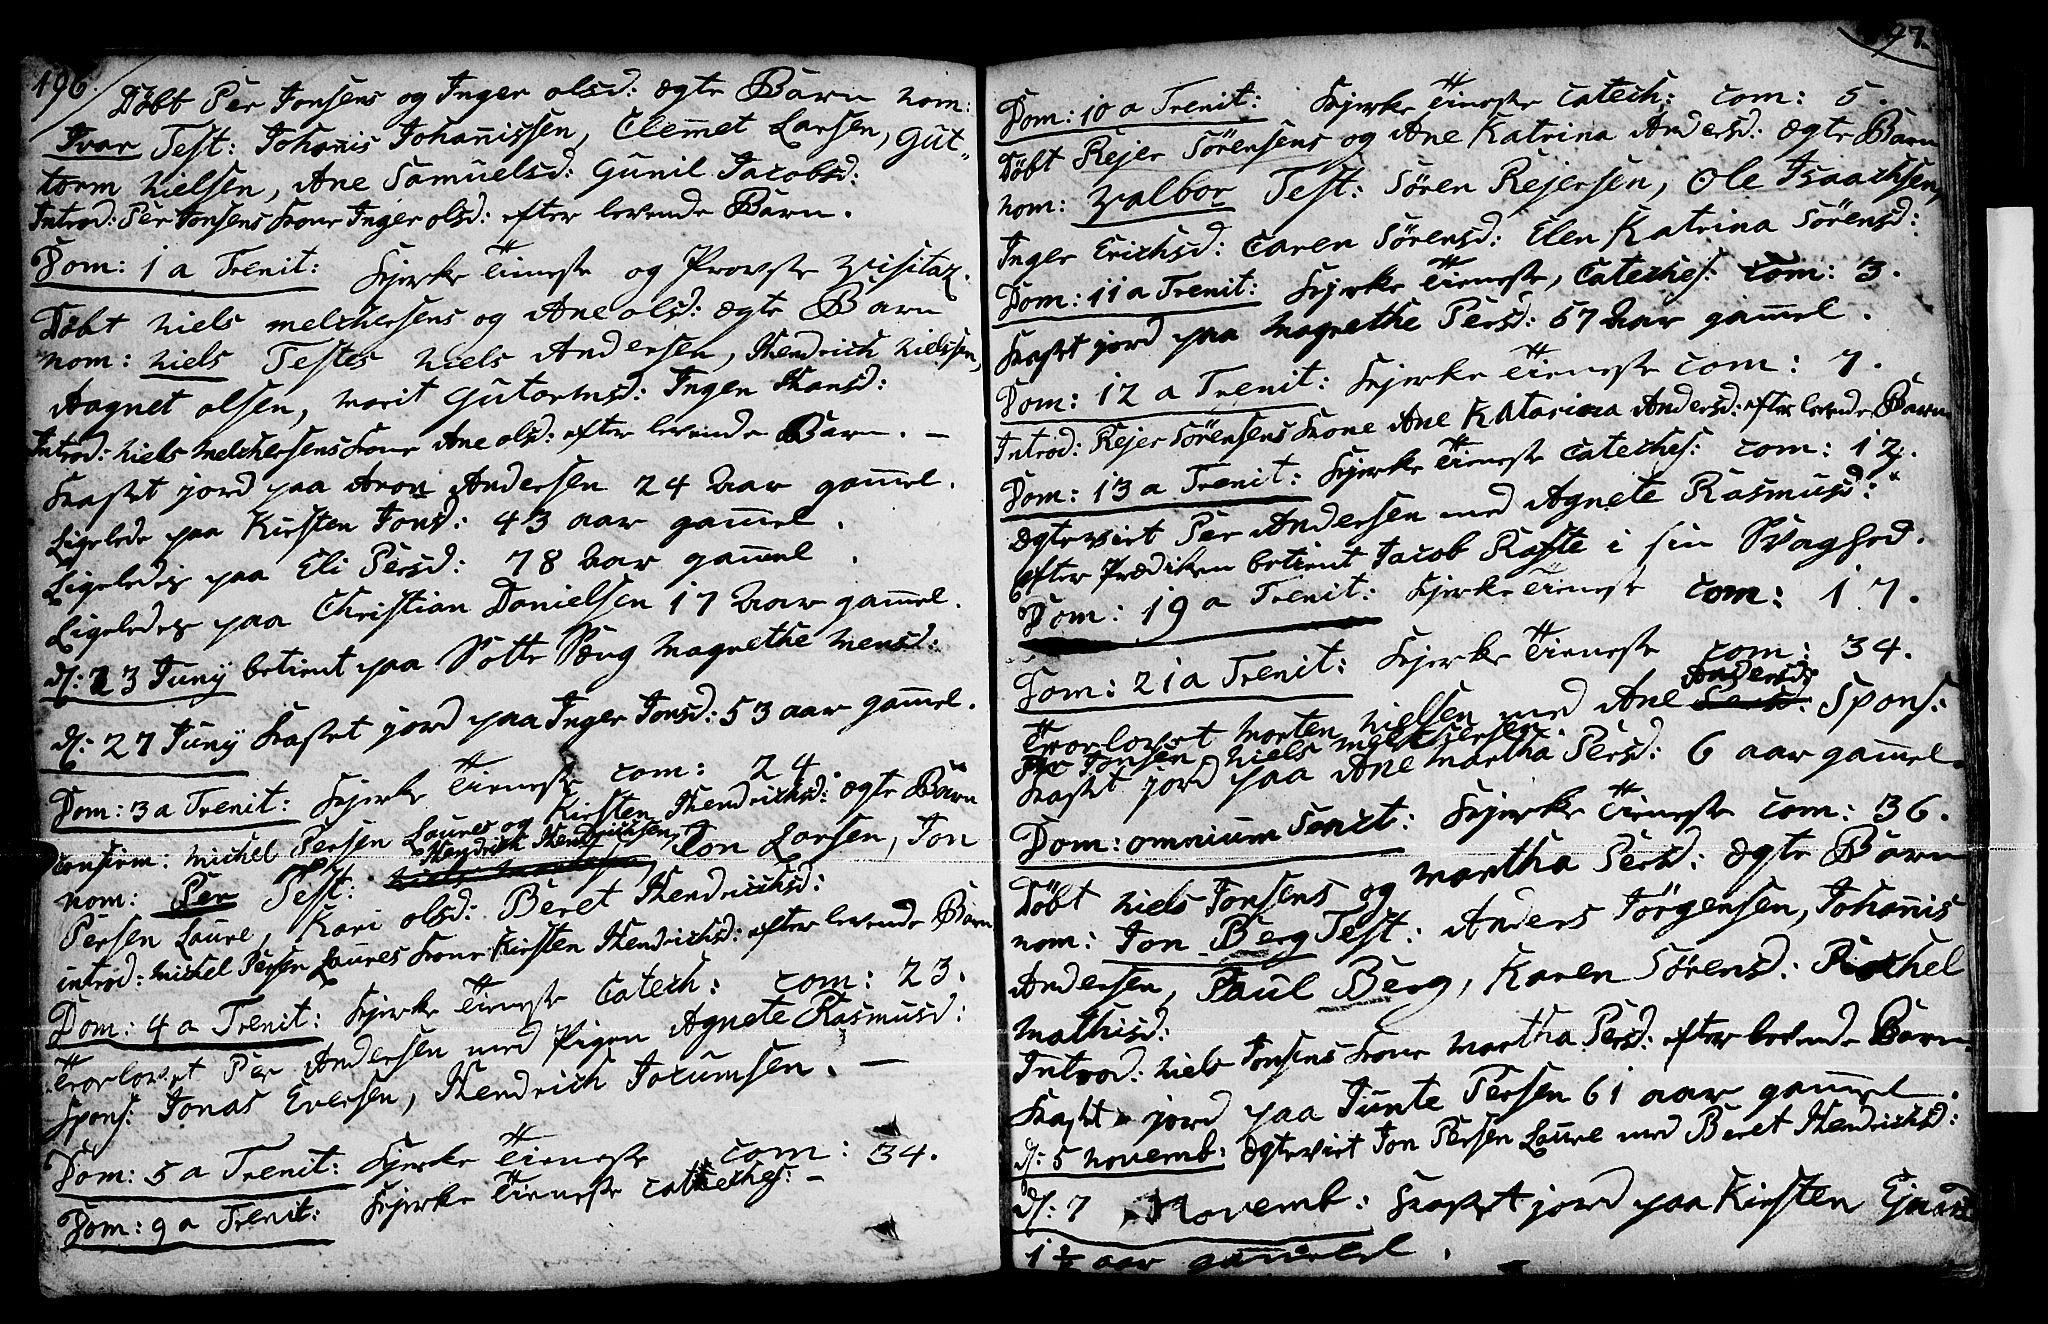 196.
Döbt Per Jonsens og Inger olsd: ægte Barn nom:
Ivar Test: Johanis Johanissen, Clemmet Larsen, Gut-
torm Nielsen, Ane Samuelsd: Gunil Jacobsd:
Introd: Per Jonsens Kone Inger olsd: efter levende Barn.
Dom: 1 a Trenit: Kjerke Tieneste og Provste Visitaz.
Döbt Niels Melchersens og Ane olsd: ægte Barn
nom: Niels Testes Niels Andersen, Hendrich Nielsen,
Aagnet olsen, Marit Gutormsd: Inger Hansd:
Introd: Niels Melchersens Kone Ane olsd: efter levende Barn. –
Kastet jord paa Aron Andersen 24 Aar gammel.
Ligelede paa Kirsten Jonsd: 43 aar gammel.
Ligeledes paa Eli Persd: 78 Aar gammel.
Ligeledes paa Christian Danielsen 17 Aar gammel.
d: 23 Juny betient paa Sotte Seng Magrethe Mensd:
d: 27 Juny Kastet jord paa Inger Jonsd: 53 aar gammel.
Dom: 3 a Trenit: Kjerke Tieneste com: 24.
Confirm: Michel Persen Laures og Kirsten Hendrichsd: ægte Barn
nom: Per Test: Hendrich Hendrichsen, Jon Larsen, Jon
Persen Laure, Kari olsd: Beret Hendrichsd:
introd: Michel Persen Laures Kone Kirsten Hendrichsd: efter levende Barn
Dom: 4 a Trenit: Kjerke Tieneste Catech: com: 23.
Trorlovet Per Andersen med Pigen Agnete Rasmusd:
Spons: Jonas Eversen, Hendrich Jocumsen. –
Dom: 5 a Trenit: Kjerke Tieneste com: 34.
Dom: 9 a Trenit: Kjerke Tieneste Cateches: –
97.
Dom: 10 a Trenit: Kjerke Tieneste Catech: com: 5.
Döbt Rejer Sörensens og Ane Katrina Andersd: ægte Barn
nom: Valbor Test: Sören Rejersen, Ole Isaachsen,
Inger Erichsd: Caren Sörensd: Elen Katrina Sörensd:
Dom: 11 a Trenit: Kjerke Tieneste, Cateches: Com: 3.
Kastet jord paa Magrethe Persd: 57 Aar gammel.
Dom: 12 a Trenit: Kjerke Tieneste com: 7.
Introd: Rejer Sörensens Kone Ane Katarina Andersd: efter levende Barn
Dom: 13 a Trenit: Kjerke Tieneste Cateches: com: 12.
Ægteviet Per Andersen med Agnete Rasmusd:
efter Prædiken betient Jacob Raste i sin Svaghed.
Dom: 19 a Trenit: Kjerke Tieneste com: 17.
Dom: 21 a Trenit: Kjerke Tieneste com: 34.
Trorlovet Morten Nielsen med Ane Andersd: Spons:
Per Jonsen Niels Melchersen.
Kastet jord paa Ane Martha Persd: 6 aar gammel.
Dom: omnium Sanct: Kjerke Tieneste Com: 36.
Döbt Niels Jonsens og Martha Persd: ægte Barn
nom: Jon Berg Test: Anders Jörgensen, Johanis
Andersen, Paul Berg, Karen Sörensd: Rachel
Mathisd:
Introd: Niels Jonsens Kone Martha Persd: efter levende Barn.
Kastet jord paa Junte Persen 61 aar gammel.
d: 5 Novemb: Ægteviet Jon Persen Laure med Beret Hendrichsd:
d: 7 Novemb: Kastet jord paa Kirsten
1 1/2 aar gammel.